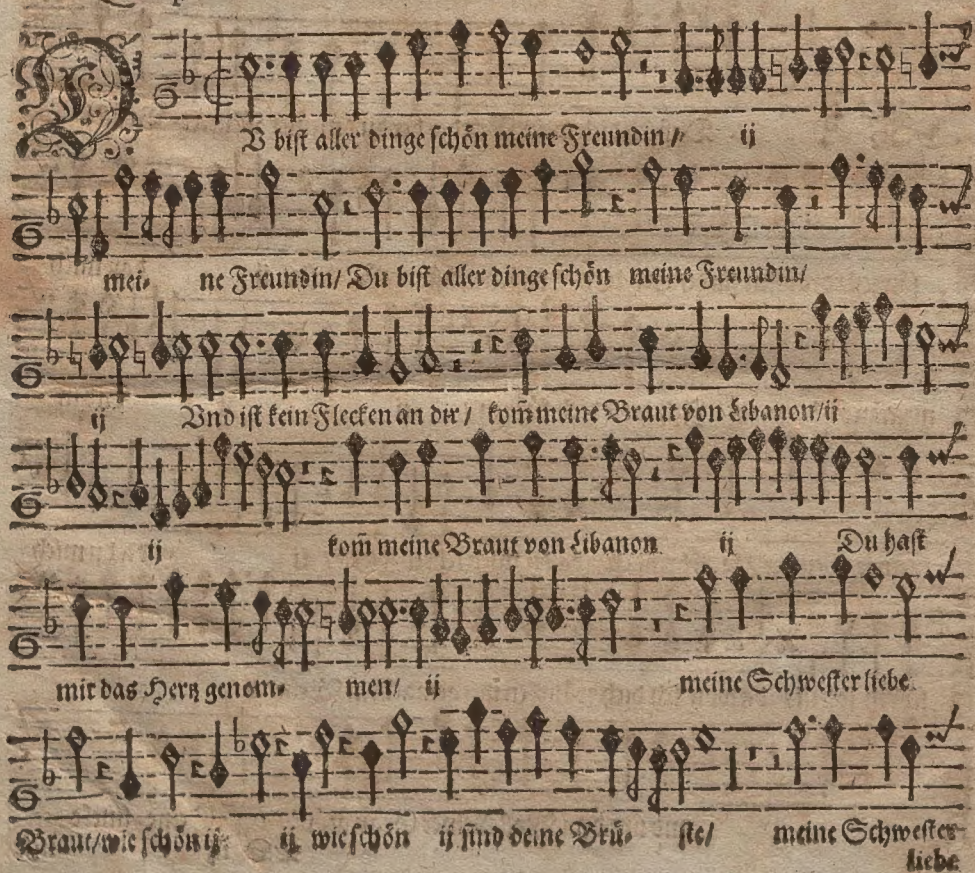 DV bist aller dinge schön meine Freundin / ij
mei- ne Freundin/ Du bist aller dinge schön meine Freundin/
ij Vnd ist kein Flecken an dir / kom̃ meine Braut von Libanon/ij
ij kom̃ meine Braut von Libanon ij Du hast
mir das Hertz genom- men/ ij meine Schwester liebe
Braut/wie schön ij ij wie schön ij sind deine Brü- ste/ meine Schwester
liebe